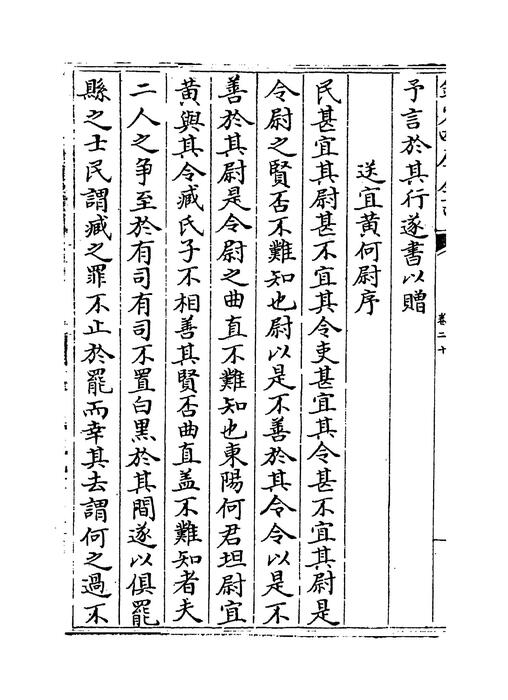 卷二十
予言於其行遂書以贈
送宜黃何尉序
民甚宜其尉甚不宜其令吏甚宜其令甚不宜其尉是
令尉之賢否不難知也尉以是不善於其令令以是不
善於其尉是令尉之曲直不難知也東陽何君坦尉宜
黃與其令臧氏子不相善其賢否曲直盖不難知者夫
二人之争至於有司有司不置白黑於其間遂以俱罷
縣之士民謂臧之罪不止於罷而幸其去謂何之過不